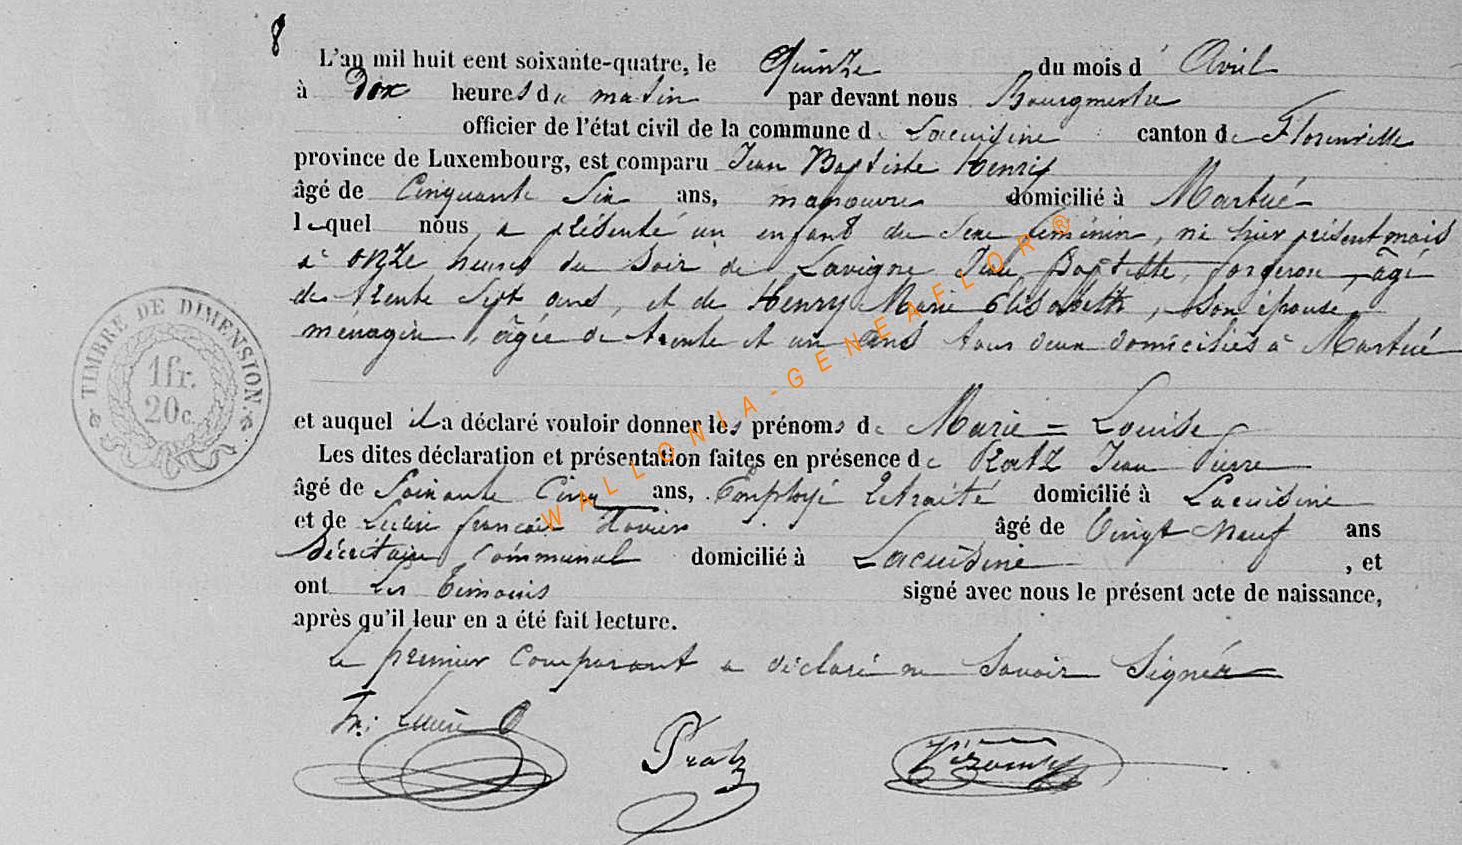 8
L'an mil huit cent soixante-quatre, le Quinze du mois d' Avril
à Dix heures du matin par devant nous Bourgmestre
officier de l'état civil de la commune de Lacuisine canton de Florenville
province de Luxembourg, est comparu Jean Baptiste Henry
âgé de Cinquante Six ans, manœuvre domicilié à Martué
lequel nous a présenté un enfant du sexe féminin, né hier présent mois
à onze heures du soir de Lavigne Jean Baptiste, forgeron, âgé
de trente sept ans, et de Henry Marie Elisabeth, son épouse,
ménagère, âgée de trente et un ans tous deux domiciliés à Martué
et auquel il a déclaré vouloir donner les prénoms de Marie = Louise
Les dites déclaration et présentation faites en présence de Ratz Jean Pierre
âgé de Soixante Cinq ans, Employé retraité domicilié à Lacuisine
et de françois Xavier âgé de Vingt Neuf ans
Sécrétaire Communal domicilié à Lacuisine , et
ont Les Témoins signé avec nous le présent acte de naissance,
après qu'il leur en a été fait lecture.
Le premier comparant a déclaré ne Savoir Signér
TIMBRE DE DIMENSION
1fr.
20c.
WALLONIA-GENEAFLOR®